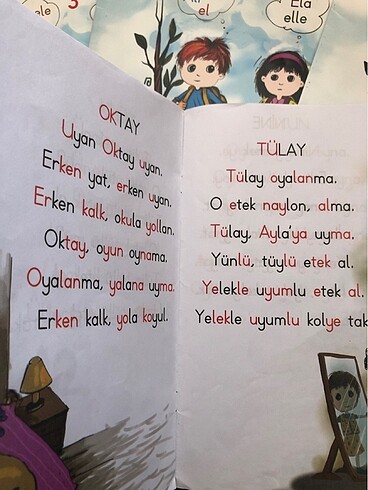 3
el
Ela
elle
OKTAY
Uyan Oktay uyan.
Erken yat, erken uyan.
Erken kalk, okula yollan.
Oktay, oyun oynama.
Oyalanma, yalana uyma.
Erken kalk, yola koyul.
TÜLAY
Tülay oyalanma.
O etek naylon, alma.
Tülay, Ayla'ya uyma.
Yünlü, tüylü etek al.
Yelekle uyumlu etek al.
Yelekle uyumlu kolye tak